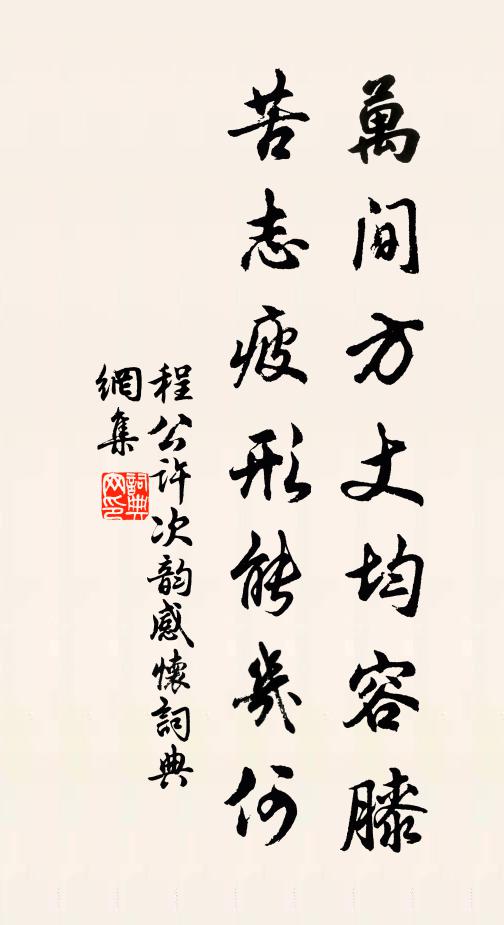 萬間方丈均容膝
苦志疲形能幾何
程公許次韵感懷詞典
網集
詞典
网印